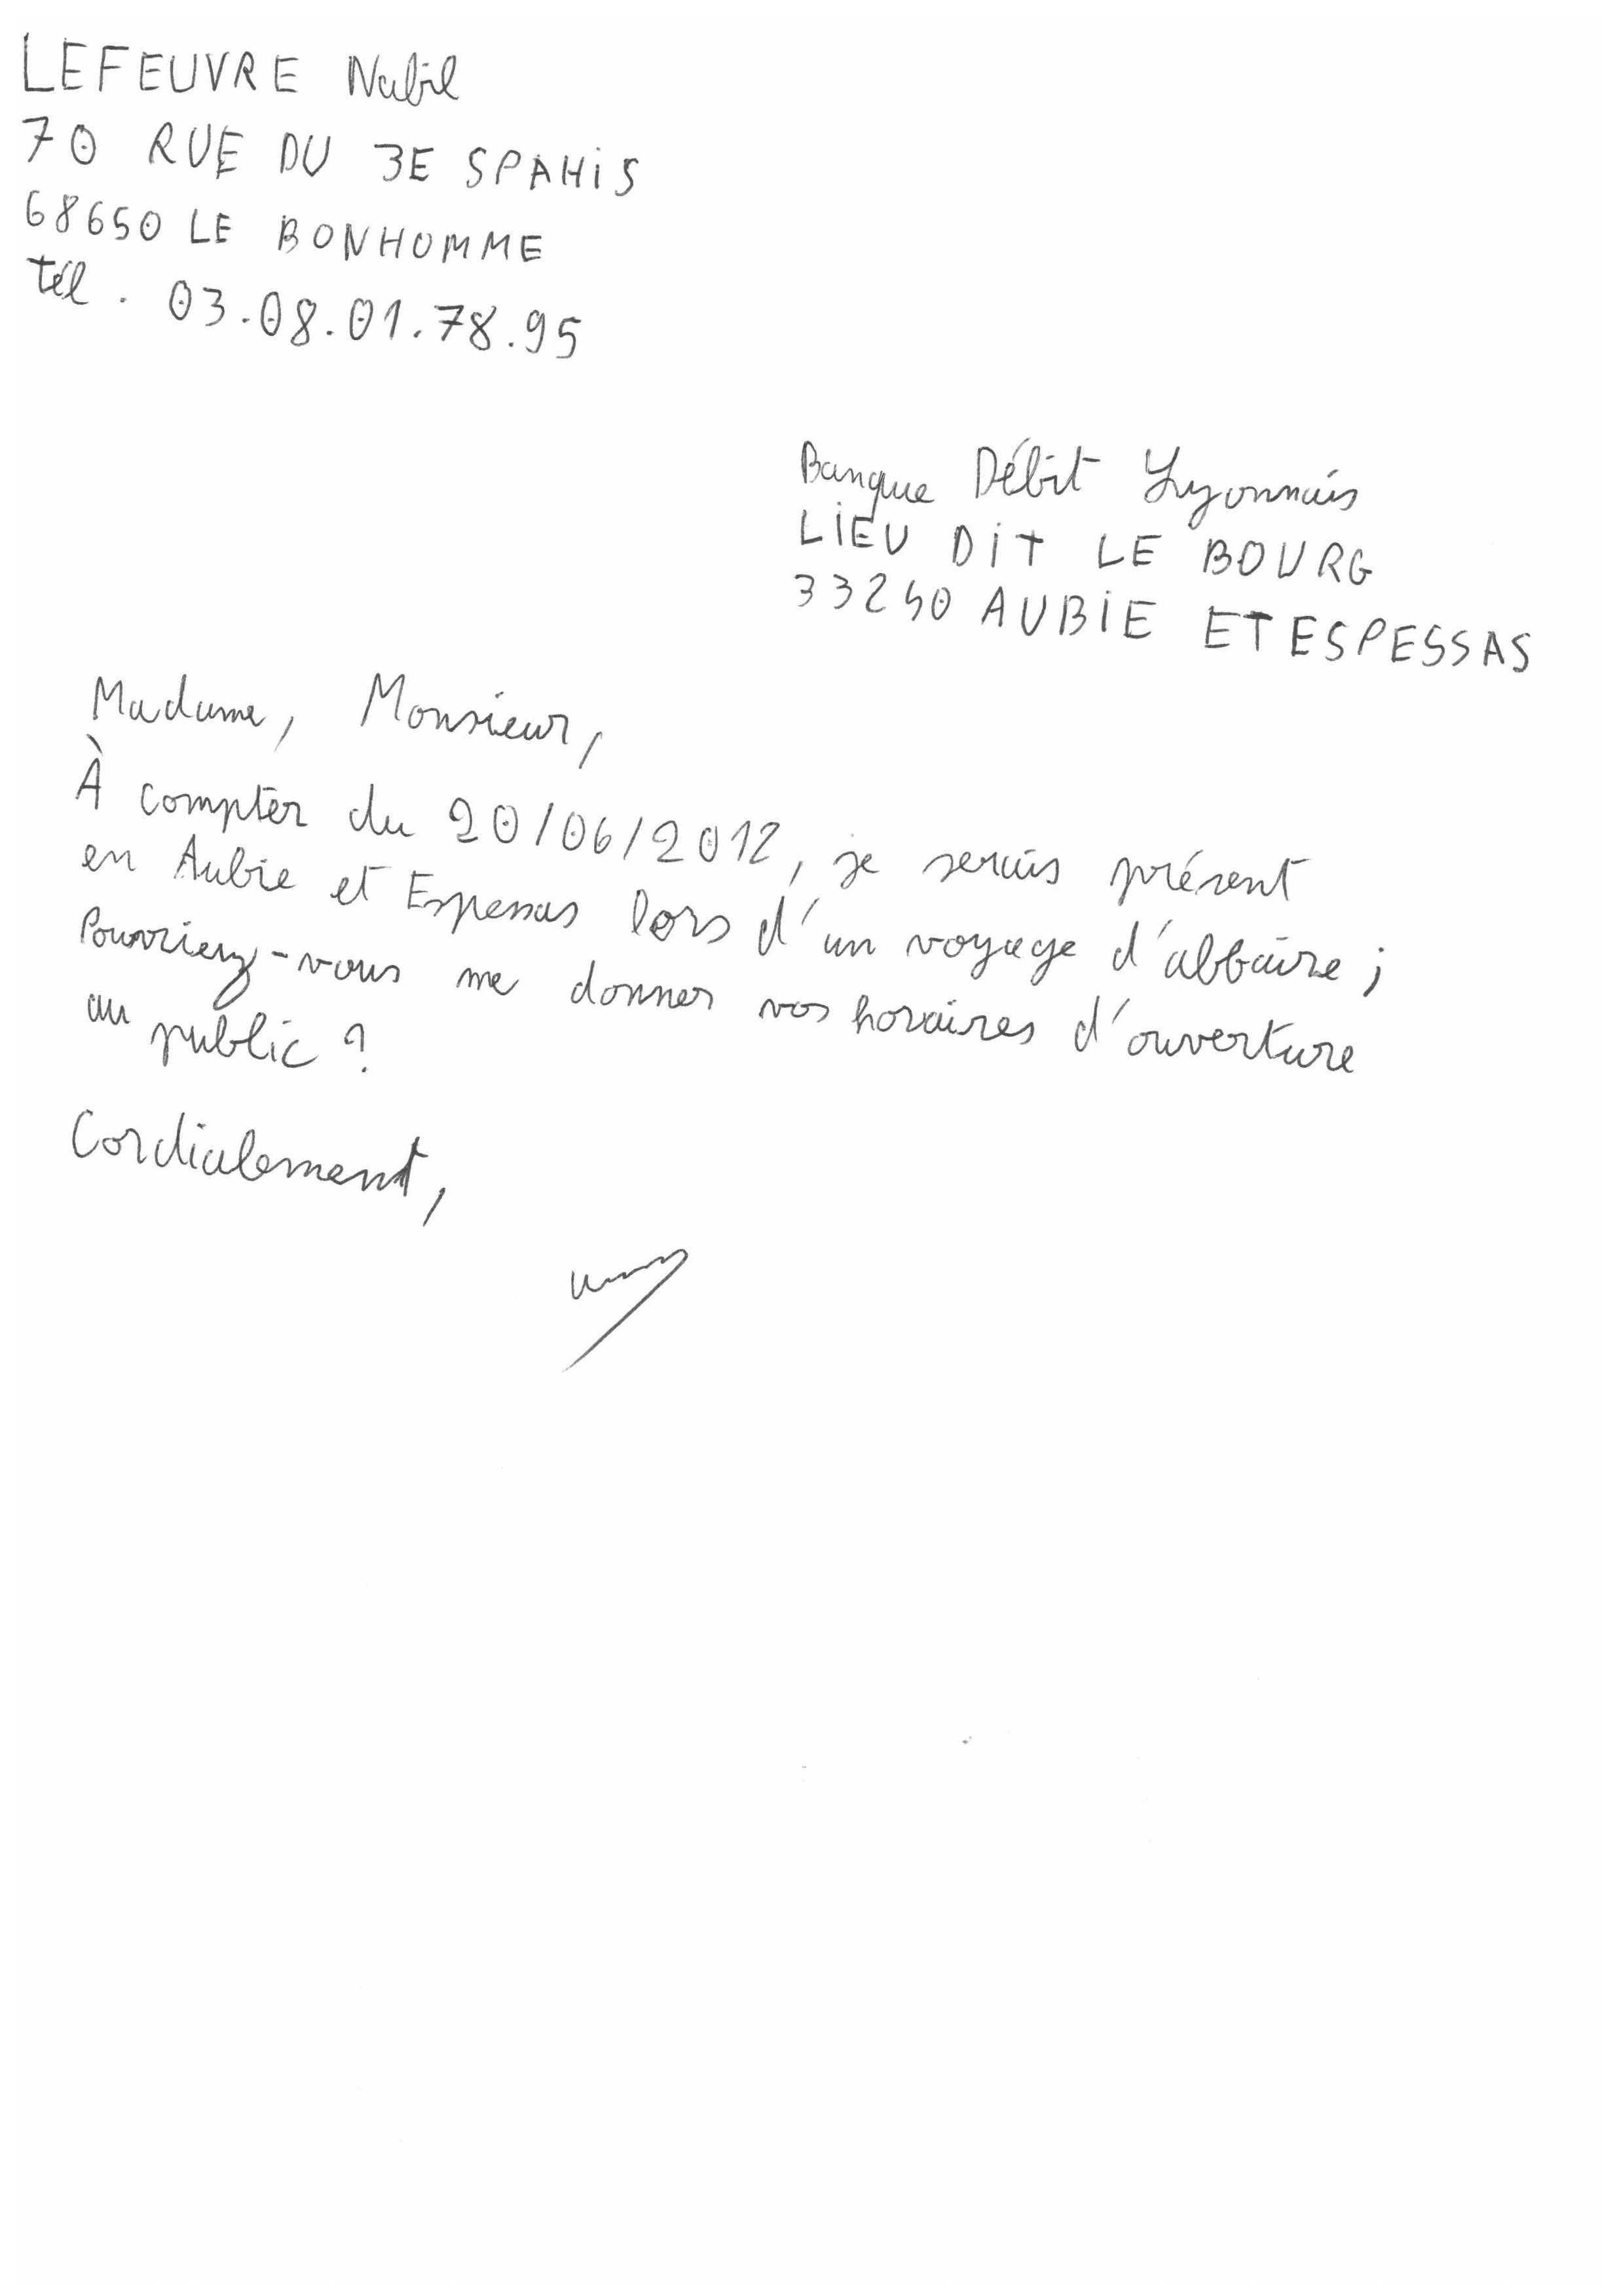 LEFEUVRE Nabil
70 RUE DU 3E SPAHIS
68650 LE BONHOMME
tél. 03.08.01.78.95
Banque Débit Lyonnais
LIEU DIT LE BOURG
33240 AUBIE ET ESPESSAS
Madame, Monsieur,
À compter du 20/06/2012, je serais présent
en Aubie et Espessas lors d'un voyage d'affaire ;
Pourriez-vous me donner vos horaires d'ouverture
au public ?
Cordialement,